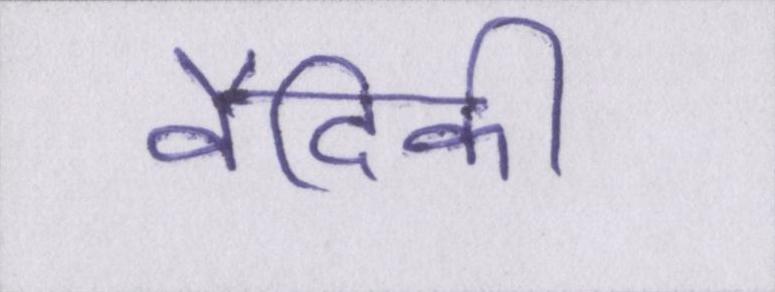 वैदिकी